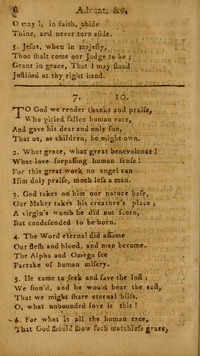 8 Advent, &c.
O may I, in faith, abide
Thine, and never turn aside.
5. Jesus, when in majesty,
Thou shalt come our Judge to be;
Grant in grace, That I may stand
Justified at thy right hand.
7. 10.
TO God we render thanks and praise,
Who pitied fallen human race,
And gave his dear and only son,
That us, as children, he might own.
2. What grace, what great benevolence!
What love surpassing human sense!
For this great work no angel can
Him duly praise, much less a man.
3. God takes on him our nature base,
Our Maker takes his creature's place;
A virgin's womb he did not scorn,
But condescended to be born.
4. The Word eternal did assume
Our flesh and blood, and man become.
The Alpha and Omega see
Partake of human misery.
5. He came to seek and save the lost;
We sinn'd, and he would bear the cost,
That we might share eternal bliss.
O, what unbounded love is this!
6. For what is all the human race,
That God should show such matchless grace,